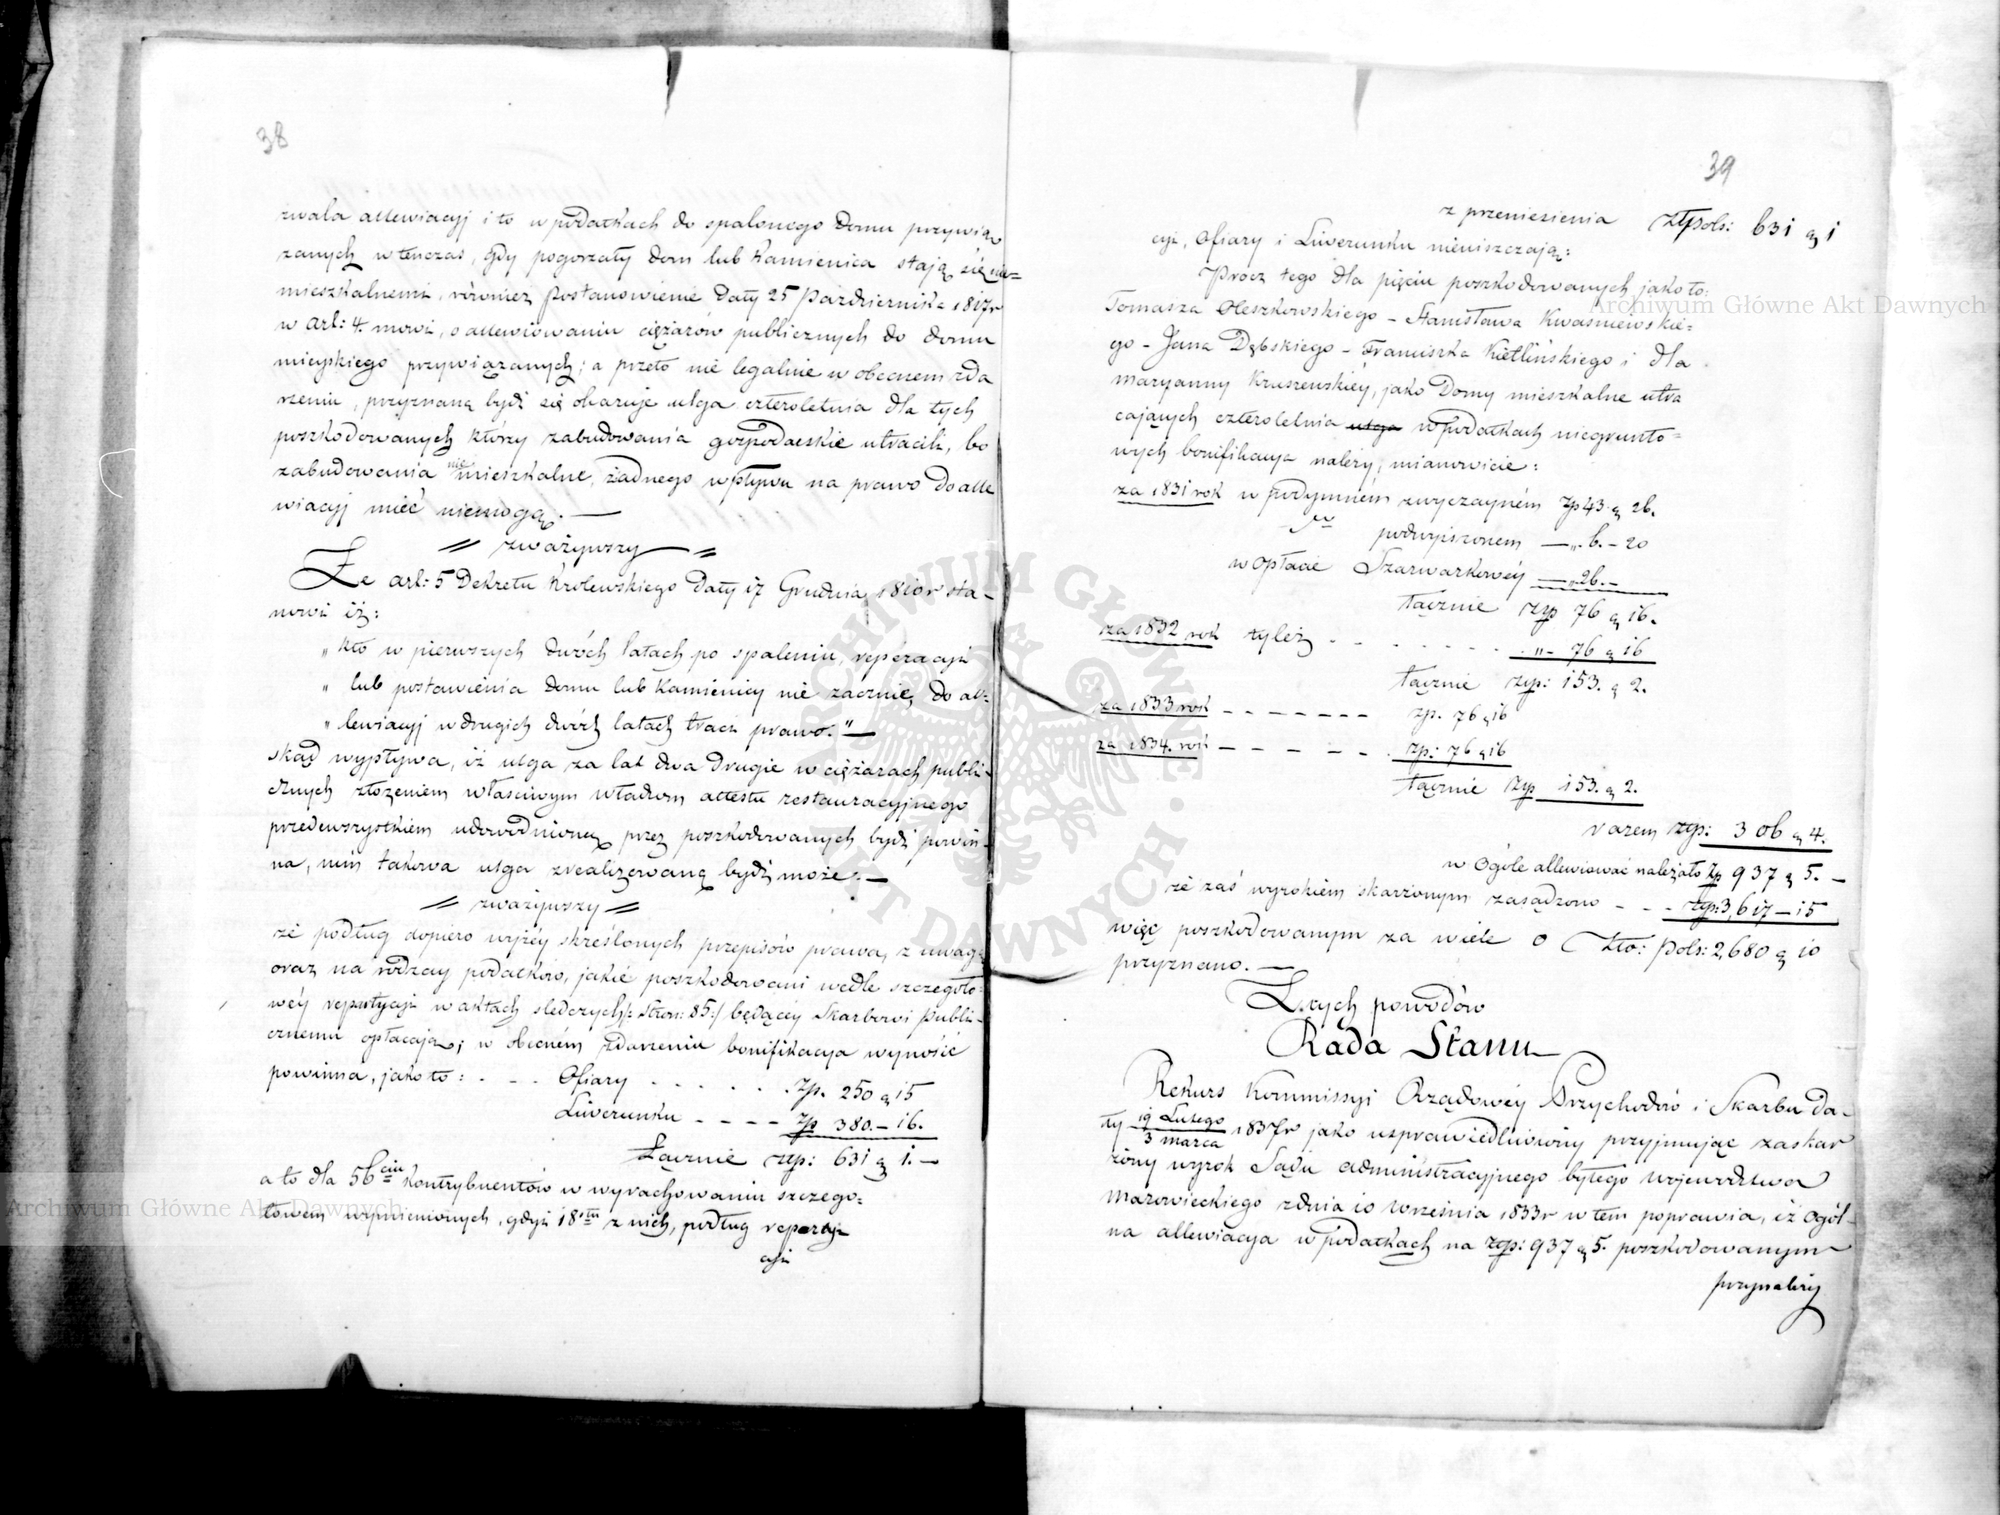 38
zwala allewiacyj i to w podatkach do spalonego domu przywią
zanych wtenczas, gdy pogorzały dom lub kamienica stają się nie=
mieszkalnemi, również postanowienie daty 25 Października 1817r
w art: 4. mowi, o allewiowaniu ciężarów publicznych do domu
mieyskiego przywiązanych; a przeto nie legalnie w obecnem zda
rzeniu, przyznaną bydź się okazuje ulga czteroletnia dla tych
poszkodowanych którzy zabudowania gospodarskie utracili, bo
zabudowania nie mieszkalne, żadnego wpływu na prawo do alle
wiacyj mieć niemogą. —
// zważywszy //
Że art: 5 Dekretu Królewskiego Daty 17 Grudnia 1810r sta-
nowi iż:
„ kto w pierwszych dwóch latach po spaleniu, reperacyi
„ lub postawienia domu lub kamienicy nie zacznie, do al-
„ lewiacyj w drugich dwóch latach traci prawo." —
skąd wypływa, iż ulga za lat dwa drugie w ciężarach publi-
cznych złożeniem właściwym władzom attestu restauracyjnego
przedewszystkiem udowodnioną przez poszkodowanych bydź powin-
na, nim takowa ulga zrealizowaną bydź może. —
// zważywszy //
że podług dopiero wyżéy skréślonych przepisów prawa, z uwagi
oraz na rodzay podatków, jakie poszkodowani wedle szczegóło-
wéy repartycyi w aktach śledczych /: Stron: 85:/ będącey Skarbowi Publi-
cznemu opłacają; w obecném zdarzeniu bonifikacya wynosić
powinna, jako to: . - . Ofiary . . . . . . zp. 250 g 15
Liwerunku - - - - zp 380. - 16.
Łącznie złp: 631 g 1. —
a to dla 56ciu kontrybuentów w wyrachowaniu szczegó=
łowem wymienionych, gdyż 18stu z nich, podług reparty
cyi
39
z przeniesienia złpols: 631 g 1
cyi, Ofiary i Liwerunku nieuiszczają:
Prócz tego dla pięciu poszkodowanych jako to:
Tomasza Oleszkowskiego - Stanisława Kwasniewskie=
go - Jana Dębskiego - Franciszka Kietlińskiego i dla
Maryanny Kruszewskiéy, jako Domy mieszkalne utra
cających czteroletnia ulga w podatkach niegrunto=
wych bonifikacya należy, mianowicie:
za 1831 rok w podymném zwyczayném zp 43. g 26.
podwyższonem —„. 6. - 20
w opłacie Szarwarkowéy —„ 26. -
Łącznie złp 76 g 16.
za 1832 rok tyleż - . . . . . . . „- 76 g 16
Łącznie złp: 153. g 2.
za 1833 rok - - - - - - - zp. 76 g 16
za 1834. rok - - - - - . zp: 76 g 16
Łącznie złp 153. g 2.
razem złp: 306 g 4.
w Ogóle allewiować należało zp 937 g 5. —
że zaś wyrokiem skarżonym zasądzono - - - złp: 3,617 - 15
więc poszkodowanym za wiele o złto: pols: 2,680 g 10
przyznano. —
Z tych powodów
Rada Stanu
Rekurs Kommissyi Rządowéy Przychodów i Skarbu da-
ty 19 Lutego / 3 Marca 1837r jako usprawiedliwiony przyjmując zaskar
żony wyrok Sądu administracyjnego byłego Województwa
Mazowieckiego z dnia 10 Września 1833r w tem poprawia, iż Ogól-
na allewiacya w podatkach na złp: 937 g 5. poszkodowanym
przynależy
Archiwum Główne Akt Dawnych
Archiwum Główne Akt Dawnych
ARCHIWUM GŁÓWNE AKT DAWNYCH